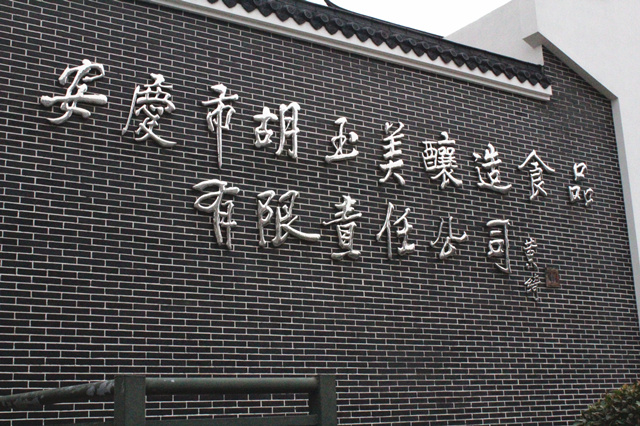 安慶市胡玉美釀造食品
有限責任公司